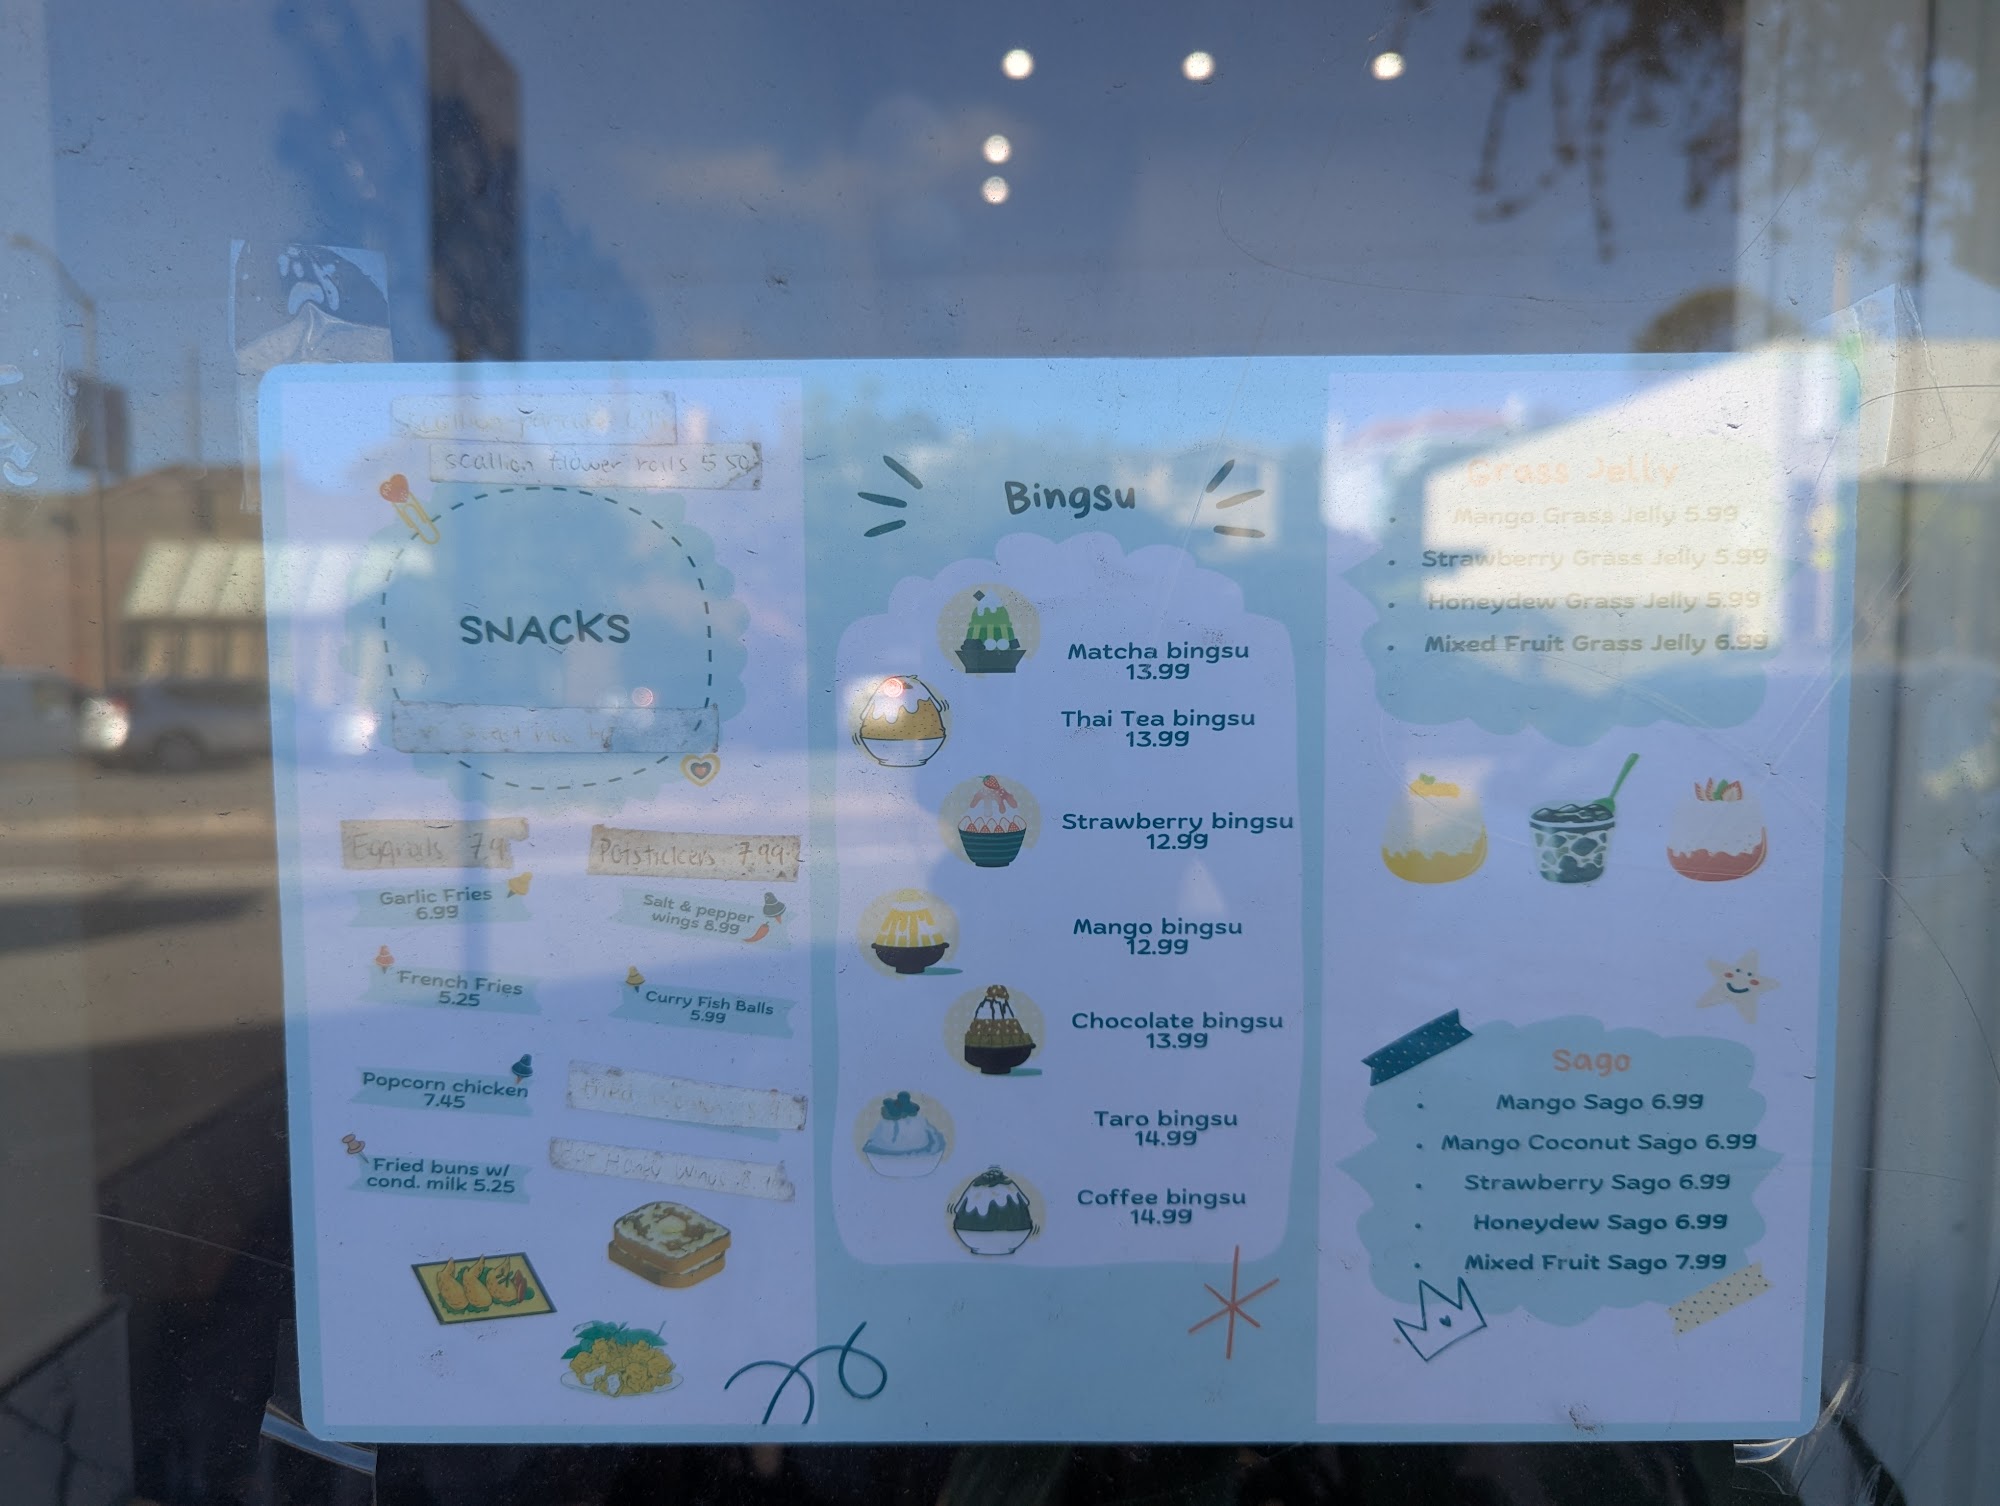 scallion flower rolls 5.50
SNACKS
Eggrolls
Potstickers 7.99
Garlic Fries
6.99
Salt & pepper
wings 8.99
French Fries
5.25
Curry Fish Balls
5.99
Popcorn chicken
7.45
Fried
Fried buns w/
cond. milk 5.25
Honey Wings
Bingsu
Matcha bingsu
13.99
Thai Tea bingsu
13.99
Strawberry bingsu
12.99
Mango bingsu
12.99
Chocolate bingsu
13.99
Taro bingsu
14.99
Coffee bingsu
14.99
Grass Jelly
• Mango Grass Jelly 5.99
• Strawberry Grass Jelly 5.99
• Honeydew Grass Jelly 5.99
• Mixed Fruit Grass Jelly 6.99
Sago
• Mango Sago 6.99
• Mango Coconut Sago 6.99
• Strawberry Sago 6.99
• Honeydew Sago 6.99
• Mixed Fruit Sago 7.99